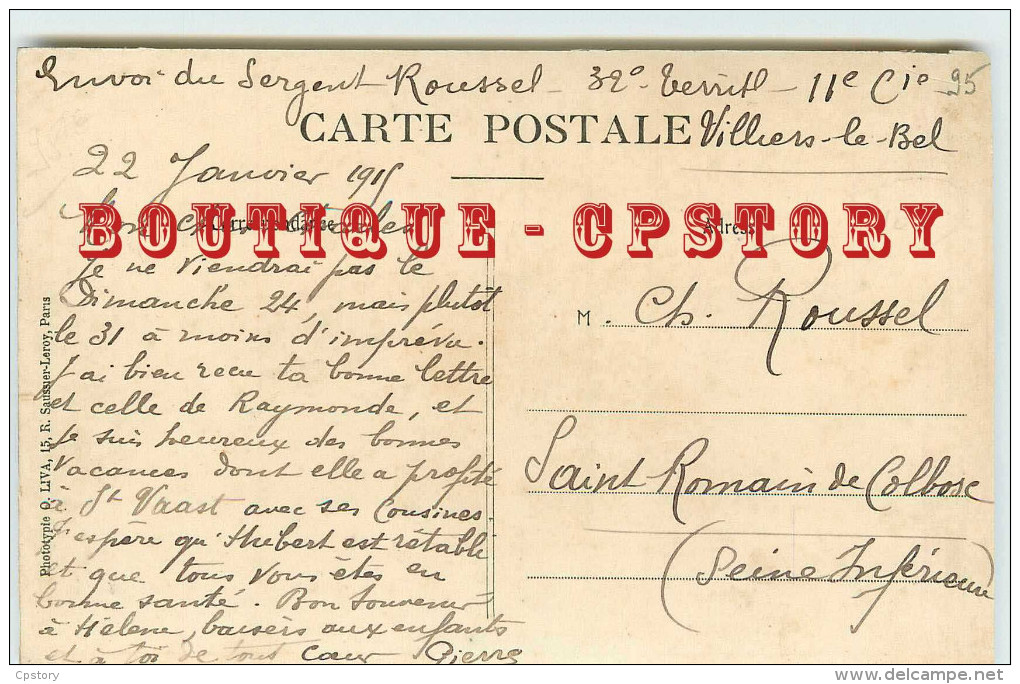 Envoi du Sergent Roussel - 32e Territl - 11e Cie - 95
CARTE POSTALE
Villiers-le-Bel
22 Janvier 1915
Mon cher
BOUTIQUE - CPSTORY
Adresse
Je ne viendrai pas le
Dimanche 24, mais plutôt
le 31 à moins d'imprévu.
J'ai bien reçu ta bonne lettre
et celle de Raymonde, et
je suis heureux des bonnes
vacances dont elle a profité
à St Vaast avec ses Cousines.
J'espère qu'Hubert est rétabli
et que tous vous êtes en
bonne santé. Bon Souvenir
à Hélène, baisers aux enfants
et à toi de tout cœur Pierre
M. Ch. Roussel
Saint Romain de Colbosc
(Seine Inférieure)
Phototypie O. LIVA, 15, R. Saussier-Leroy, Paris
Cpstory
www.delcampe.net